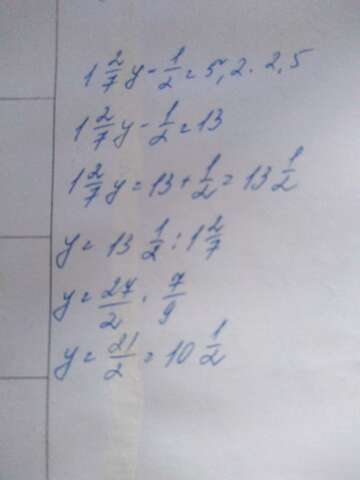 1 2/7 y - 1/2 = 5,2 · 2,5
1 2/7 y - 1/2 = 13
1 2/7 y = 13 + 1/2 = 13 1/2
y = 13 1/2 : 1 2/7
y = 27/2 · 7/9
y = 21/2 = 10 1/2